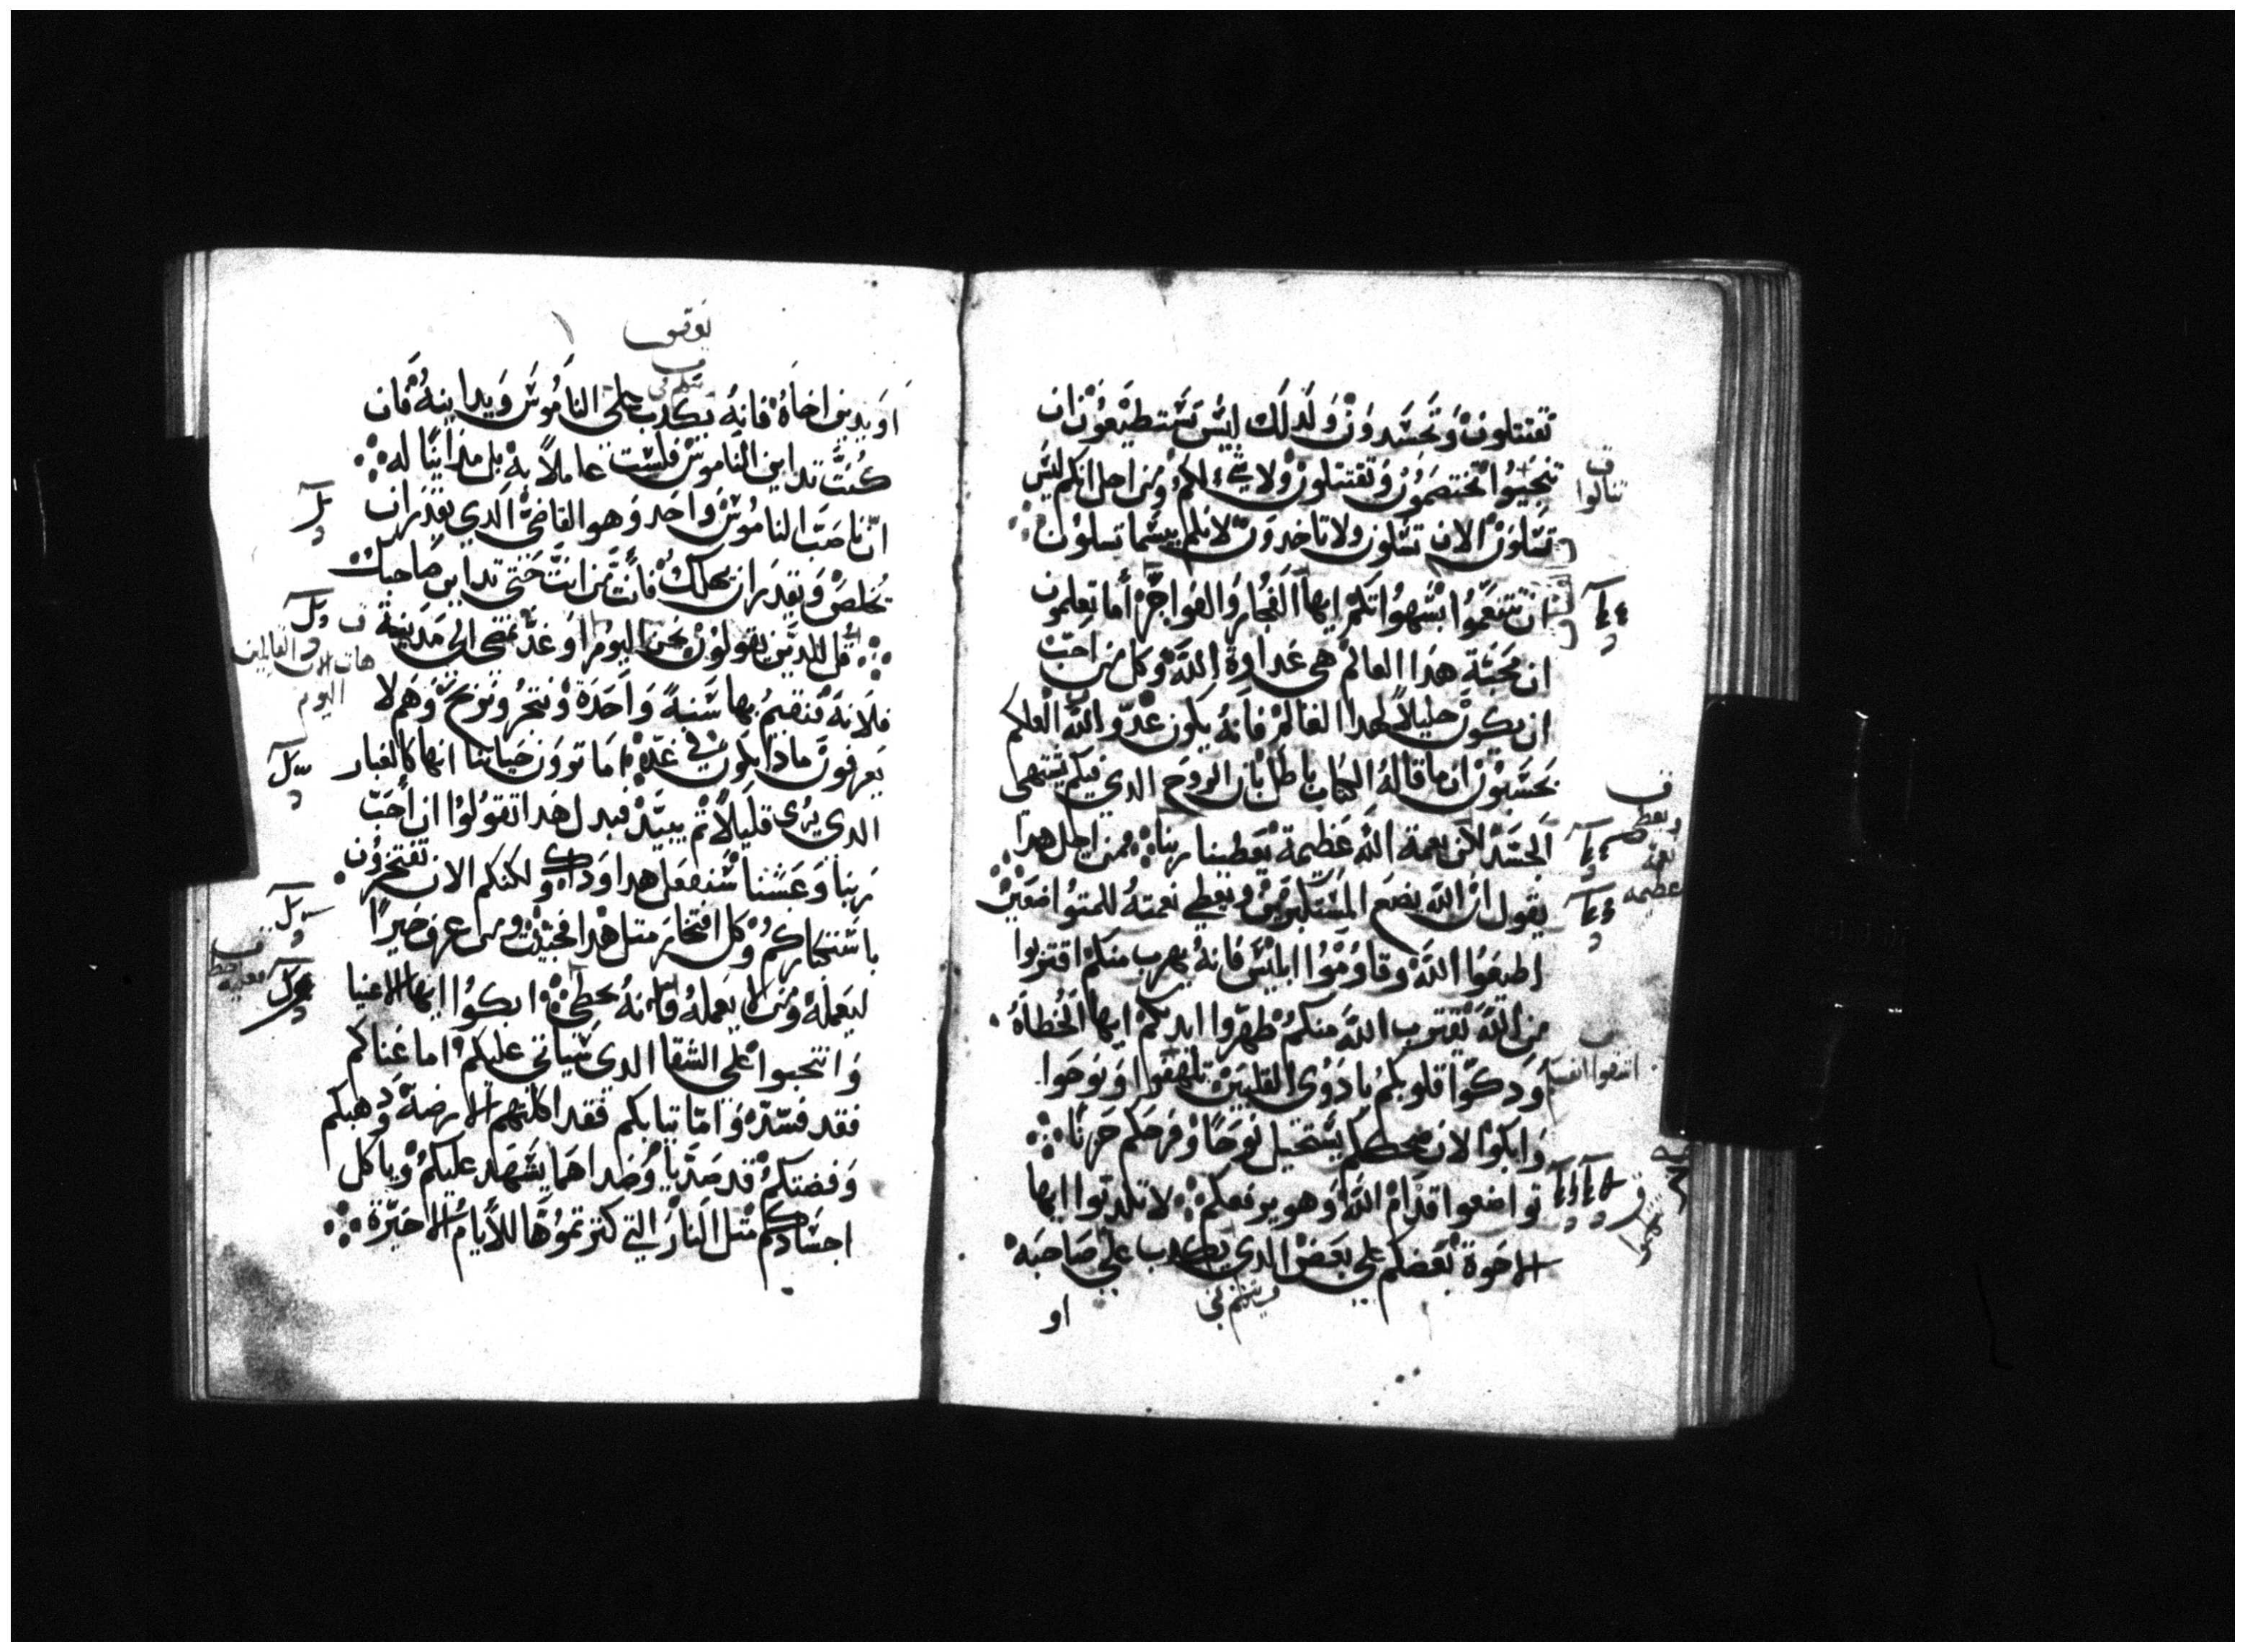 تقتتلون وتحسدون ولذلك ليس تستطيعون ان
تنجحيوا تختصمون وتقتتلون ولا شيء لكم ومن اجل انكم ليس
تسلون الان تسلون ولا تاخدون لانكم بيسما تسلون
ان تتنعموا بشهواتكم ايها الفجار والفواجر أما تعلمون
ان محبة هدا العالم هي عداوة الله وكل من احب
ان يكون خليلاً لهدا العالم فانه يكون عدو الله العلكم
تحسبون ان ما قاله الكتاب باطل بان الروح الدي فيكم يشتهي
الحسد لكن نعمة الله عظيمة تعطينا ربنا ومن اجل هدا
يقول ان الله يضع المستكبرين ويعطي نعمته للمتواضعين
اطيعوا الله وقاوموا ابليس فانه يهرب منكم اقتربوا
من الله يقترب الله منكم طهروا ايديكم ايها الخطاة
ودكوا قلوبكم يا دوي القلبين تلهفوا ونوحوا
وابكوا لان ضحككم يستحيل نوحًا وفرحكم حزنًا
تواضعوا قدام الله وهو يرفعكم لا تكدبوا ايها
الاخوة بعضكم علي بعض الدي يكدب علي صاحبه
او
يعقوب
او يدين اخاه فانه يكدب على الناموس ويداينه فان
كنت تداين الناموس فلست عاملاً به بل مداينًا له
ان ناصب الناموس واحد وهو القاضي الدي يقدر ان
يخلص ويقدر ان يهلك فأنت من انت حتى تداين صاحبك
قل للدين يقولون نحن اليوم او غد نمضي الى مدينة
فلانة فنقيم بها سنة واحدة ونتجر ونربح وهم لا
يعرفون مادا يكون في غد اما ترون حياتنا انها كالغبار
الدي يرى قليلاً تم يبيد فبدل هدا تقولوا ان أحب
ربنا وعشنا سنفعل هدا وداك ولكنكم الان تفتخرون
باستكباركم وكل افتخار متل هدا فخبيث ومن عرف خيرًا
ليعمله ومن لا يعمله فانه يخطى ابكوا ايها الاغنيا
وانتحبوا على الشقا الدي سياتي عليكم اما غناكم
فقد فسد واما تيابكم فقد اكلتهم الارضة ودهبكم
وفضتكم قد صديا وصداهما يشهد عليكم وياكل
اجسادكم متل النار التي كنزتموها للأيام الاخيرة